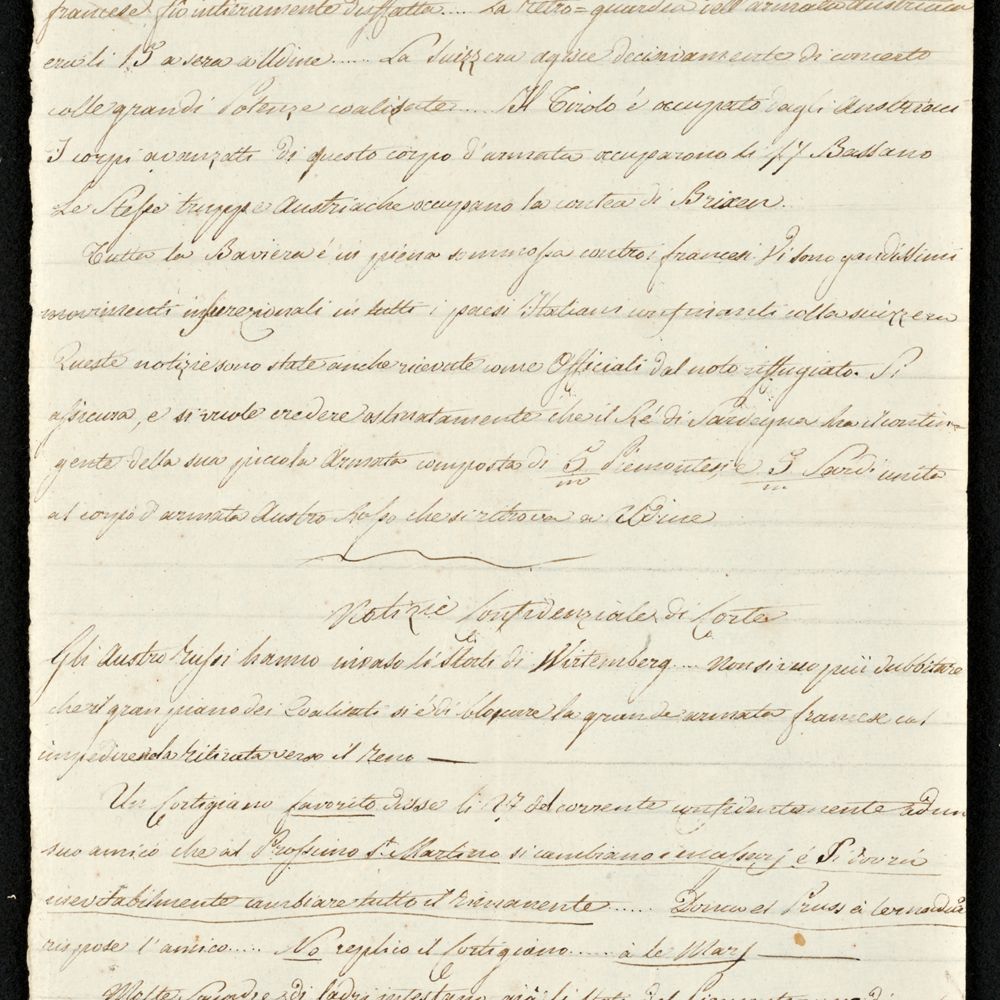 francese fù intieramente disfatta.... La retro=guardia dell'armata Austriaca
era li 15 a sera a Udine..... La Suizzera agisce decisivamente di concerto
colle grandi Potenze coalisate.... Il Tirolo é occupato dagli Austriaci
I corpi avanzatti di questo corpo d'armata occuparono li 17 Bassano
Le stesse truppe Austriache occupano la contea di Brixen.
Tutta la Baviera é in piena sommossa contro i francesi. Vi sono grandissimi
movimenti insurezionali in tutti i paesi Italiani confinanti colla suizzera
Queste notizie sono state anche ricevute come Officiali dal noto riffugiato. Si
assicura, e si vuole credere ostinatamente che il Ré di Sardegna ha il contin=
gente della sua piccola Armata composta di 5/m Piemontesi, e 3/m Sardi unita
al corpo d'armata Austro Russo che si ritrova a Udine
Notizie Confidenziale di Corte
Gli Austro Russi hanno invaso li Stati di Wirtemberg.... non si può più dubbitare
che il gran piano dei Coalisati si é di blocare la grande armata francese col
impedirenda ritirata verso il Reno —
Un Cortigiano favorito disse li 27 del corrente confidentamente ad un
suo amico che al Prossimo St Martino si cambiano i e si dovrà
inevitabilmente cambiare tutto il rimanente..... Donca el
rispose l'amico..... No replico il Cortigiano..... à le Marj —
Molte di ladri già li Stati del